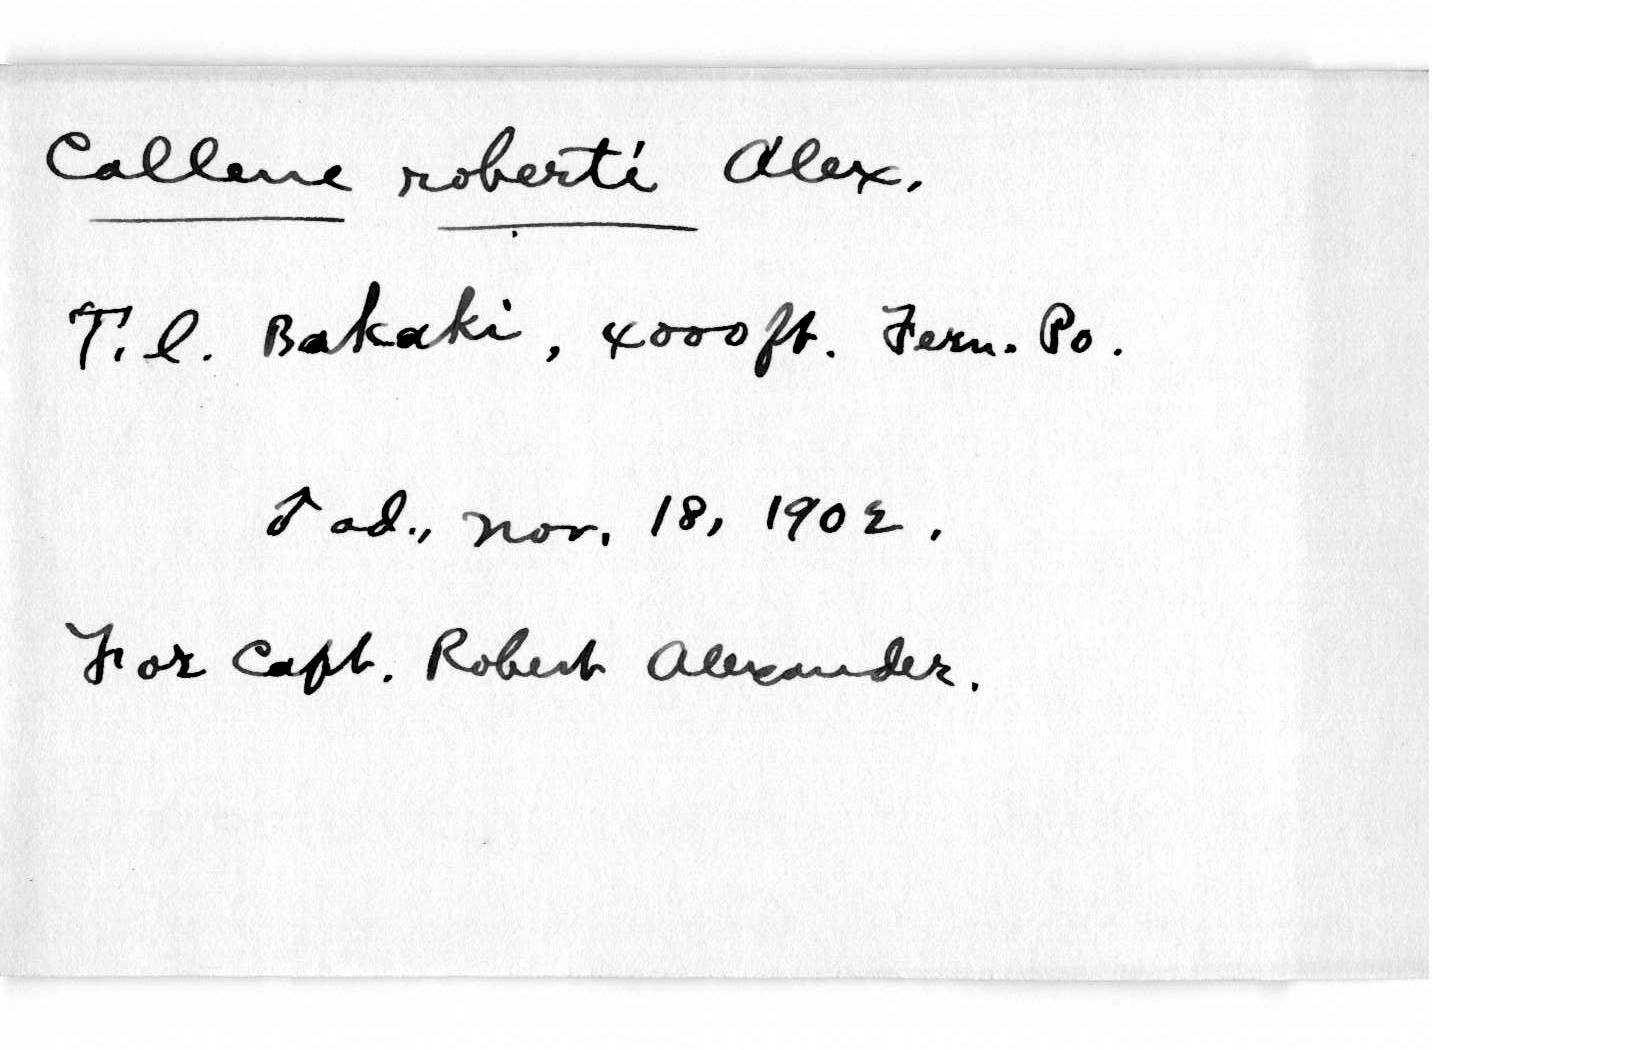 Callene roberti Alex.
T. l. Bakaki, 4000 ft. Fern. Po.
♂ ad., Nov. 18, 1902.
For Capt. Robert Alexander.